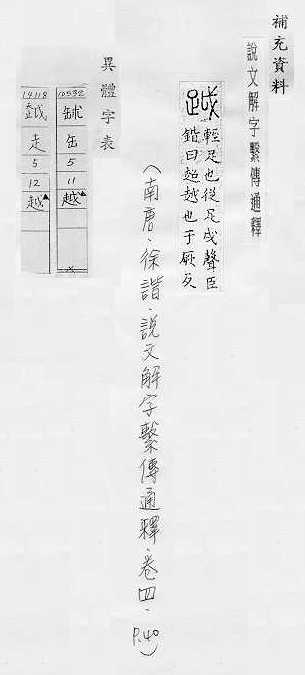 補充資料
說文解字繫傳通釋
輕足也從足戉聲臣
鍇曰超越也于厥反
(南唐．徐諧．說文解字繫傳通釋．卷四．P.40)
異體字表
10532
缶
5
11
越▲
14118
走
5
12
越▲